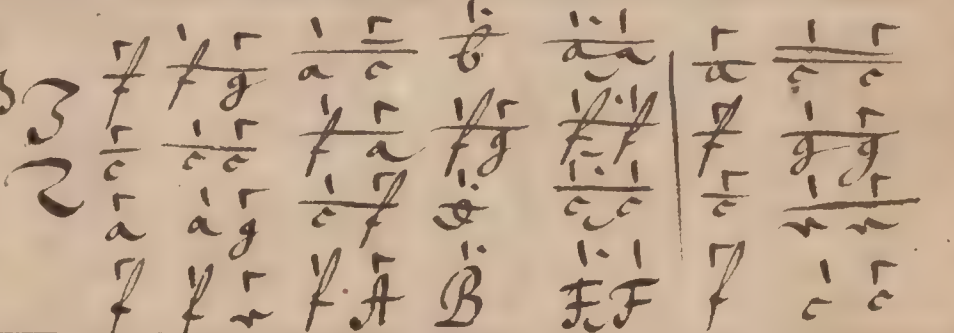 3 f f g a c b a a | a c c
2 c c c f a f g f f | f g g
a a g c f d c c | c e e
f f e f A B F F | f c c